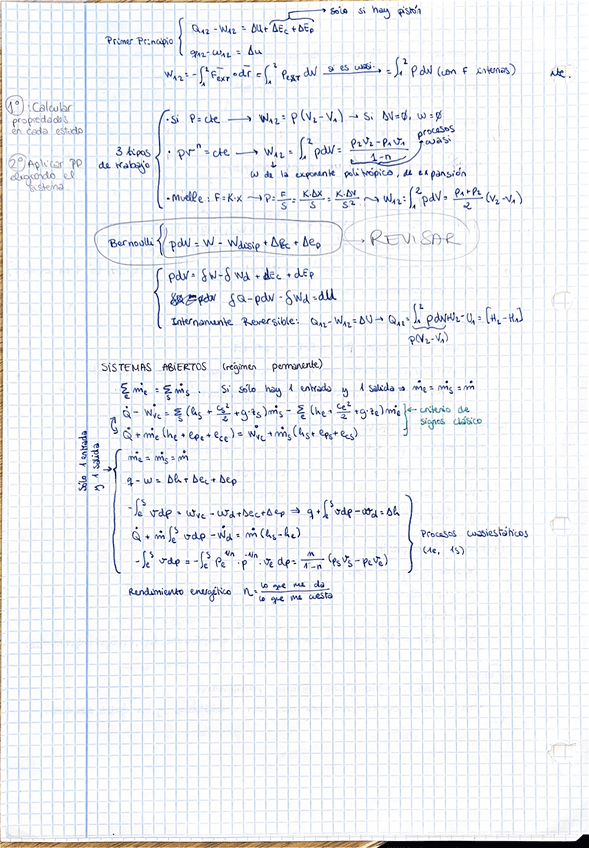 → Solo si hay pistón
Primer Principio { Q₁₂ - W₁₂ = ΔU + ΔEc + ΔEp
q₁₂ - w₁₂ = Δu
W₁₂ = -∫₁² F̄ext · dr̄ = ∫₁² Pext dV si es cuasi. → = ∫₁² P dV (con F internas)
1º: Calcular
propiedades
en cada estado
2º Aplicar PP
eligiendo el
sistema
3 tipos
de trabajo
· Si P = cte → W₁₂ = P (V₂ - V₁) → Si ΔV = ∅, w = ∅
· pvⁿ = cte → W₁₂ = ∫₁² pdV = (P₂V₂ - P₁V₁)/(1-n) procesos cuasi
↳ de exponente politrópico, de expansión
· Muelle: F = K·x → P = F/S = K·Δx/S = K·ΔV/S² → W₁₂ = ∫₁² pdV = (P₁+P₂)/2 (V₂ - V₁)
Bernoulli { pdv = W - Wdisip + ΔEc + Δep → REVISAR
pdV = δW - δWd + dEc + dEp
δQ - pdv - δWd = dU
Internamente Reversible: Q₁₂ - W₁₂ = ΔU → Q₁₂ = ∫₁² pdV + U₂ - U₁ = [H₂ - H₁]
p(V₂ - V₁)
SISTEMAS ABIERTOS (régimen permanente)
Σₑ ṁe = Σₛ ṁs . Si sólo hay 1 entrada y 1 salida → ṁe = ṁs = ṁ
Q̇ - Ẇvc = Σₛ (hs + cs²/2 + g·zs) ṁs - Σₑ (he + ce²/2 + g·ze) ṁe ← criterio de
signos clásico
Q̇ + ṁe (he + epe + ece) = Ẇvc + ṁs (hs + eps + ecs)
Sólo 1 entrada
y 1 salida
ṁe = ṁs = ṁ
q - w = Δh + Δec + Δep
-∫ₑˢ vdp = wvc - wd + Δec + Δep ⇒ q + ∫ₑˢ vdp - wd = Δh
Q̇ + ṁ ∫ₑˢ vdp - Ẇd = ṁ (hs - he)
-∫ₑˢ vdp = -∫ₑˢ Pe^(1/n) · p^(-1/n) · ve dp = n/(1-n) (ps vs - pe ve)
Procesos cuasiestáticos
(1e, 1s)
Rendimiento energético η = lo que me da / lo que me cuesta